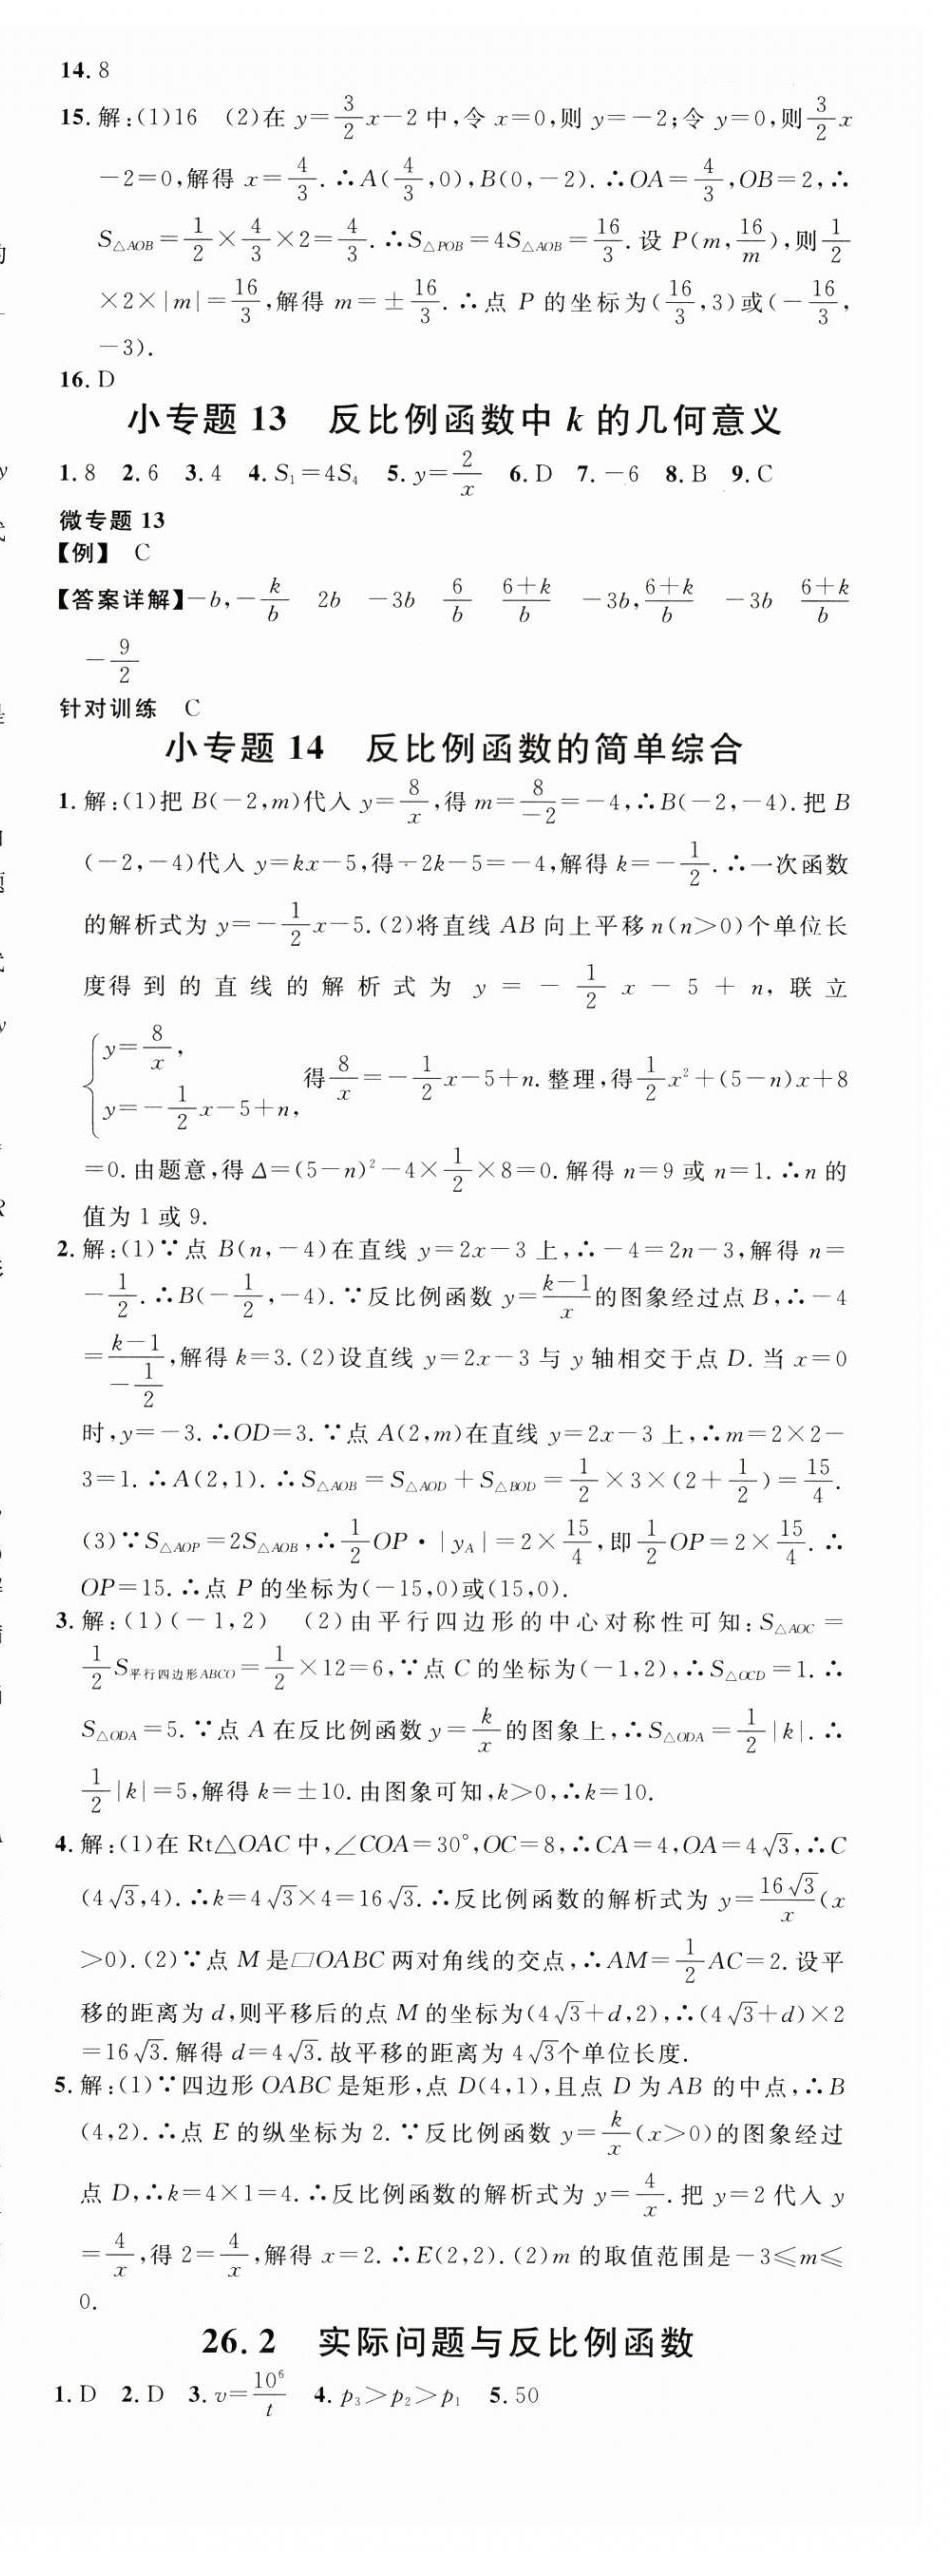 14. 8
15. 解:(1)16 (2)在 y=3/2x-2 中,令 x=0,则 y=-2;令 y=0,则3/2x
-2=0,解得 x=4/3.∴A(4/3,0),B(0,-2).∴OA=4/3,OB=2,∴
S△AOB=1/2×4/3×2=4/3.∴S△POB=4S△AOB=16/3.设 P(m,16/m),则1/2
×2×|m|=16/3,解得 m=±16/3.∴点 P 的坐标为(16/3,3)或(-16/3,
-3).
16. D
小专题 13 反比例函数中 k 的几何意义
1. 8 2. 6 3. 4 4. S₁=4S₄ 5. y=2/x 6. D 7. -6 8. B 9. C
微专题 13
【例】 C
【答案详解】-b,-k/b 2b -3b 6/b (6+k)/b -3b,(6+k)/b -3b (6+k)/b
-9/2
针对训练 C
小专题 14 反比例函数的简单综合
1. 解:(1)把 B(-2,m)代入 y=8/x,得 m=8/(-2)=-4,∴B(-2,-4).把 B
(-2,-4)代入 y=kx-5,得-2k-5=-4,解得 k=-1/2.∴一次函数
的解析式为 y=-1/2x-5.(2)将直线 AB 向上平移 n(n>0)个单位长
度得到的直线的解析式为 y=-1/2x-5+n,联立
{y=8/x, y=-1/2x-5+n, 得8/x=-1/2x-5+n.整理,得1/2x²+(5-n)x+8
=0.由题意,得 Δ=(5-n)²-4×1/2×8=0.解得 n=9 或 n=1.∴n 的
值为 1 或 9.
2. 解:(1)∵点 B(n,-4)在直线 y=2x-3 上,∴-4=2n-3,解得 n=
-1/2.∴B(-1/2,-4).∵反比例函数 y=(k-1)/x的图象经过点 B,∴-4
=(k-1)/(-1/2),解得 k=3.(2)设直线 y=2x-3 与 y 轴相交于点 D.当 x=0
时,y=-3.∴OD=3.∵点 A(2,m)在直线 y=2x-3 上,∴m=2×2-
3=1.∴A(2,1).∴S△AOB=S△AOD+S△BOD=1/2×3×(2+1/2)=15/4.
(3)∵S△AOP=2S△AOB,∴1/2OP·|yA|=2×15/4,即1/2OP=2×15/4.∴
OP=15.∴点 P 的坐标为(-15,0)或(15,0).
3. 解:(1)(-1,2) (2)由平行四边形的中心对称性可知:S△AOC=
1/2S平行四边形ABCO=1/2×12=6,∵点 C 的坐标为(-1,2),∴S△OCD=1.∴
S△ODA=5.∵点 A 在反比例函数 y=k/x的图象上,∴S△ODA=1/2|k|.∴
1/2|k|=5,解得 k=±10.由图象可知,k>0,∴k=10.
4. 解:(1)在 Rt△OAC 中,∠COA=30°,OC=8,∴CA=4,OA=4√3,∴C
(4√3,4).∴k=4√3×4=16√3.∴反比例函数的解析式为 y=16√3/x(x
>0).(2)∵点 M 是□OABC 两对角线的交点,∴AM=1/2AC=2.设平
移的距离为 d,则平移后的点 M 的坐标为(4√3+d,2),∴(4√3+d)×2
=16√3.解得 d=4√3.故平移的距离为 4√3个单位长度.
5. 解:(1)∵四边形 OABC 是矩形,点 D(4,1),且点 D 为 AB 的中点,∴B
(4,2).∴点 E 的纵坐标为 2.∵反比例函数 y=k/x(x>0)的图象经过
点 D,∴k=4×1=4.∴反比例函数的解析式为 y=4/x.把 y=2 代入 y
=4/x,得 2=4/x,解得 x=2.∴E(2,2).(2)m 的取值范围是-3≤m≤
0.
26.2 实际问题与反比例函数
1. D 2. D 3. v=10⁶/t 4. p₃>p₂>p₁ 5. 50